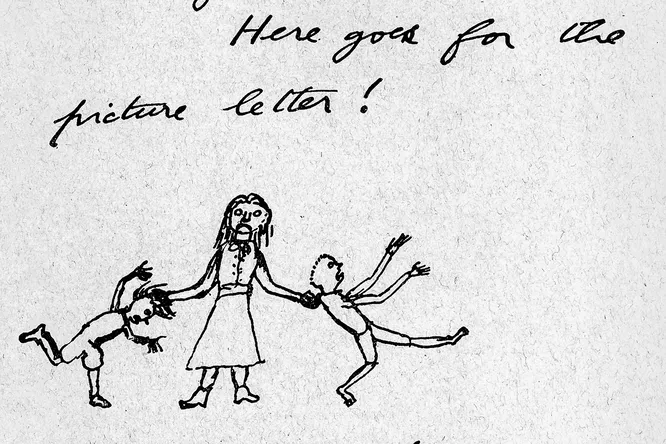 Here goes for the
picture letter!